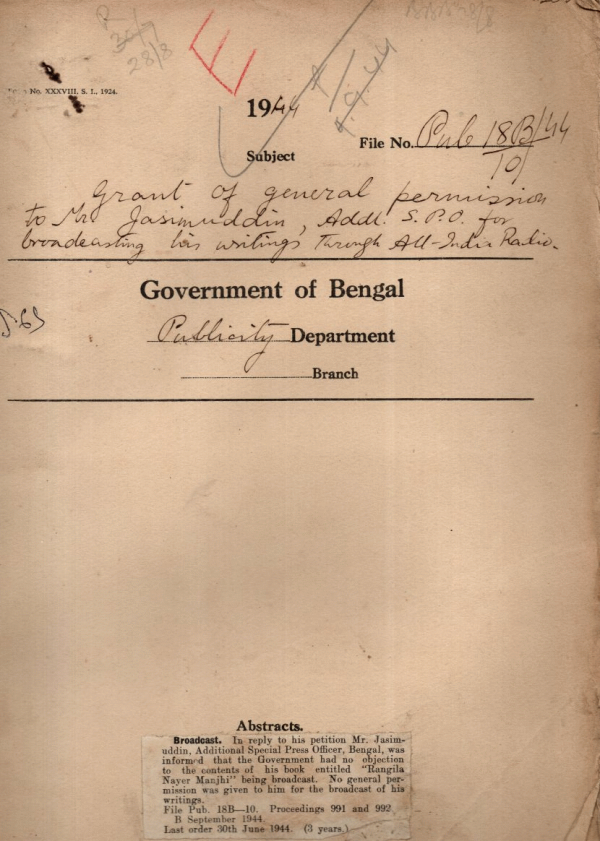 28/8
No. XXXVIII. S. I., 1924.
1944
File No. Pub 18B/44
10
Subject
Grant of general permission
to Mr. Jasimuddin, Addl. S. P. O. for
broadcasting his writings through All-India Radio.
Government of Bengal
Publicity Department
Branch
Abstracts.
Broadcast. In reply to his petition Mr. Jasim-
uddin, Additional Special Press Officer, Bengal, was
informed that the Government had no objection
to the contents of his book entitled "Rangila
Nayer Manjhi" being broadcast. No general per-
mission was given to him for the broadcast of his
writings.
File Pub. 18B—10. Proceedings 991 and 992
B September 1944.
Last order 30th June 1944. (3 years.)